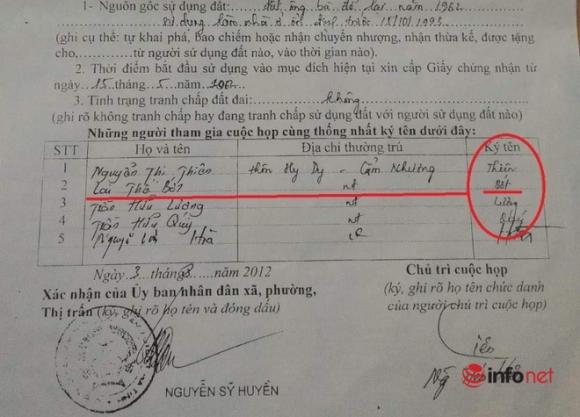 1- Nguồn gốc sử dụng đất: đất ông bà để lại năm 1962
sử dụng làm nhà ở ổn định trước 15/10/1993
(ghi cụ thể: tự khai phá, bao chiếm hoặc nhận chuyển nhượng, nhận thừa kế, được tặng
cho,......từ người sử dụng đất nào, vào thời gian nào).
2. Thời điểm bắt đầu sử dụng vào mục đích hiện tại xin cấp Giấy chứng nhận từ
ngày 15 tháng 5 năm
3. Tình trạng tranh chấp đất đai: không
(ghi rõ không tranh chấp hay đang tranh chấp sử dụng đất với người sử dụng đất nào)
Những người tham gia cuộc họp cùng thống nhất ký tên dưới đây:
STT Họ và tên Địa chỉ thường trú Ký tên
1 Nguyễn Thị Thiên thôn Hy Duy - Cẩm Nhường Thiên
2 Thị Bót nt Bót
3 Trần Hữu Lương nt Lương
4 Trần Hữu Quý nt Quý
5 Nguyễn Hà
Ngày 3 tháng 8 năm 2012
Xác nhận của Ủy ban nhân dân xã, phường,
Thị trấn (ký, ghi rõ họ tên và đóng dấu)
Chủ trì cuộc họp
(ký, ghi rõ họ tên chức danh
của người chủ trì cuộc họp)
NGUYỄN SỸ HUYỀN
infonet